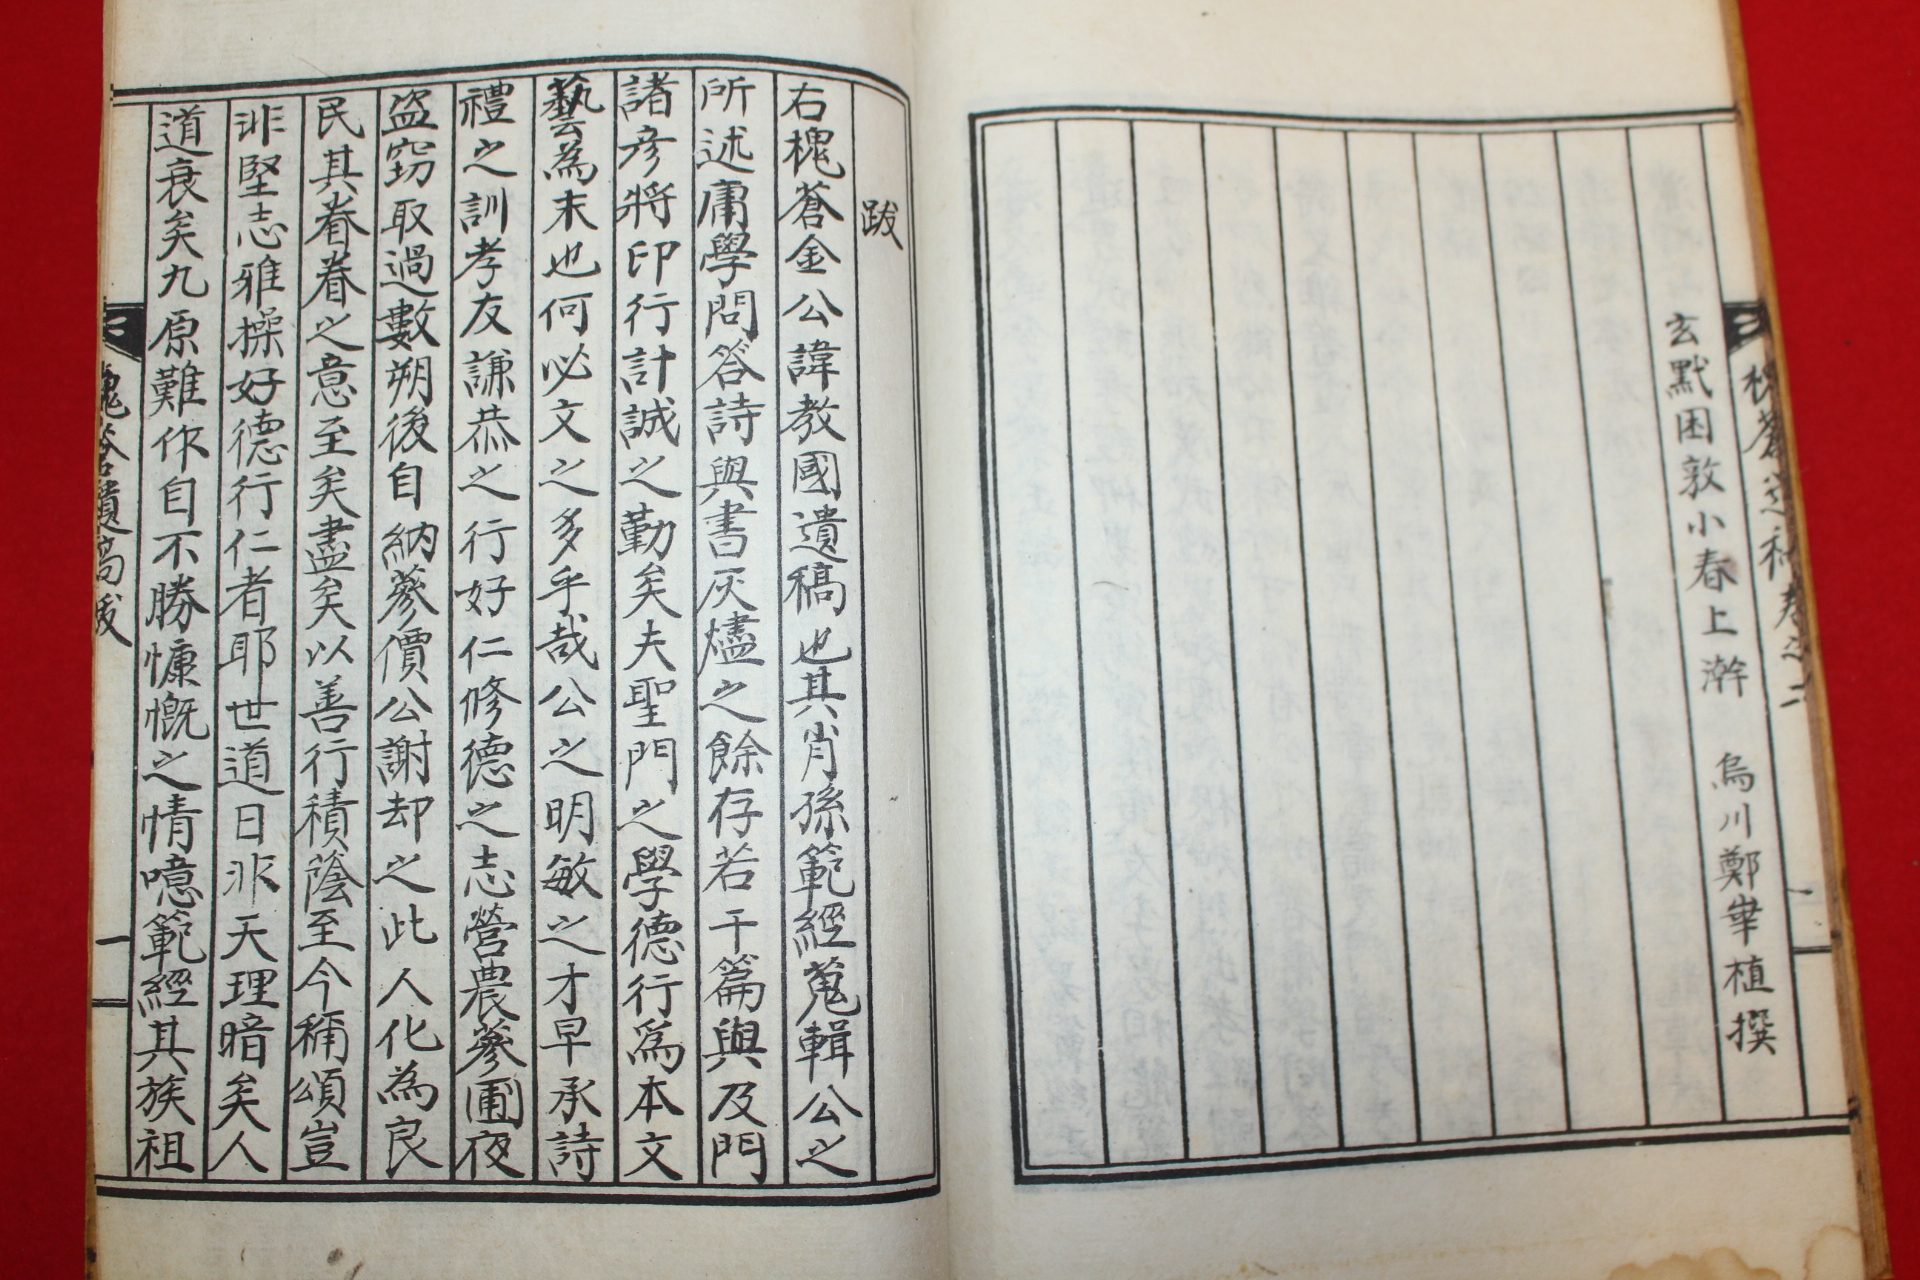 玄默困敦小春上澣 烏川鄭崋植撰
跋
右槐蒼金公諱教國遺稿也其肖孫範經蒐輯公之
所述庸學問答詩與書灰燼之餘存若干篇與及門
諸彦將印行計誠之勤矣夫聖門之學德行爲本文
藝為末也何必文之多乎哉公之明敏之才早承詩
禮之訓孝友謙恭之行好仁修德之志營農蔘圃夜
盜窃取過數朔後自納蔘價公謝却之此人化為良
民其眷眷之意至矣盡矣以善行積蔭至今稱頌豈
非堅志雅操好德行仁者耶世道日非天理暗矣人
道衰矣九原難作自不勝慷慨之情噫範經其族祖
槐蒼遺稿卷之二
槐蒼遺稿跋
一